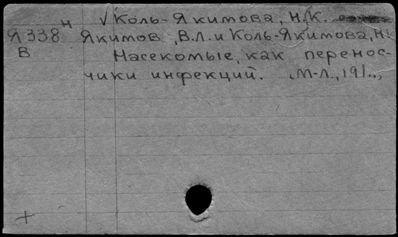 н √ Коль-Якимова, Н.К.
Я338 Якимов, В.Л. и Коль-Якимова, Н.
В Насекомые, как перенос-
чики инфекций. М-Л., 191..,
+